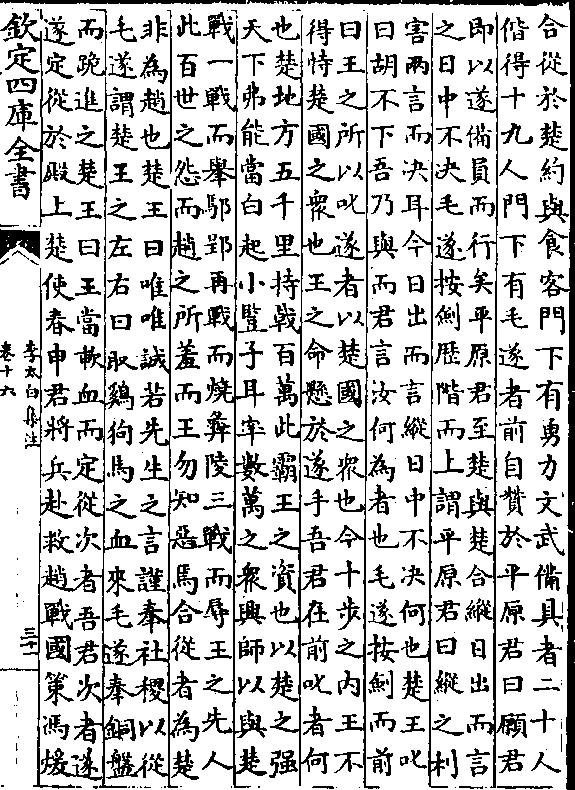 合從於楚約與食客門下有勇力文武備具者二十人
偕得十九人門下有毛遂者前自贊於平原君曰願君
即以遂備員而行矣平原君至楚與楚合縱日出而言
之日中不決毛遂按劍歴階而上謂平原君曰縱之利
害兩言而決耳今日出而言縱日中不決何也楚王叱
曰胡不下吾乃與而君言汝何為者也毛遂按劍而前
曰王之所以叱遂者以楚國之衆也今十步之内王不
得恃楚國之衆也王之命懸於遂手吾君在前叱者何
也楚地方五千里持㦸百萬此霸王之資也以楚之强
天下弗能當白起小豎子耳率數萬之衆興師以與楚
戰一戰而舉鄢郢再戰而燒彝陵三戰而辱王之先人
此百世之怨而趙之所羞而王勿知惡焉合從者為楚
非為趙也楚王曰唯唯誠若先生之言謹奉社稷以從
毛遂謂楚王之左右曰取鷄狗馬之血來毛遂奉銅盤
而跪進之楚王曰王當歃血而定從次者吾君次者遂
遂定從於殿上楚使春申君將兵赴救趙戰國策馮煖
欽定四庫全書
李太白集注
卷十六
三十